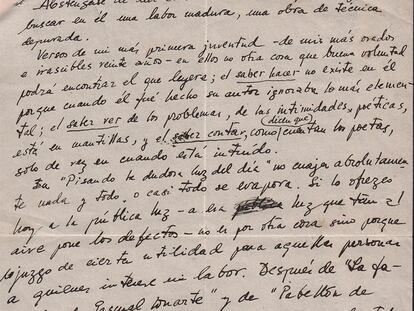 Absténgase de
buscar en él una labor madura, una obra de técnica
depurada.
Versos de mi más primera juventud - de mis más osados
e irascibles veinte años - en ellos no otra cosa que buena voluntad
podrá encontrar el que leyere; el saber hacer no existe en él
porque cuando él fué hecho su autor ignoraba lo más elemen-
tal; el saber ver de los problemas, de las intimidades poéticas,
(dicen que)
está en mantillas, y el saber contar, como cuentan los poetas,
solo de vez en cuando está intuido.
En "Pisando la dudosa luz del día" no cuaja absolutamen-
te nada y todo, o casi todo se evapora. Si lo ofrezco
hoy a la pública luz - a esa luz que tan al
aire pone los defectos - no es por otra cosa sino porque
lo juzgo de cierta utilidad para aquellas personas
a quienes interese mi labor. Después de "La fa-
Pascual Duarte" y de "Pabellón de